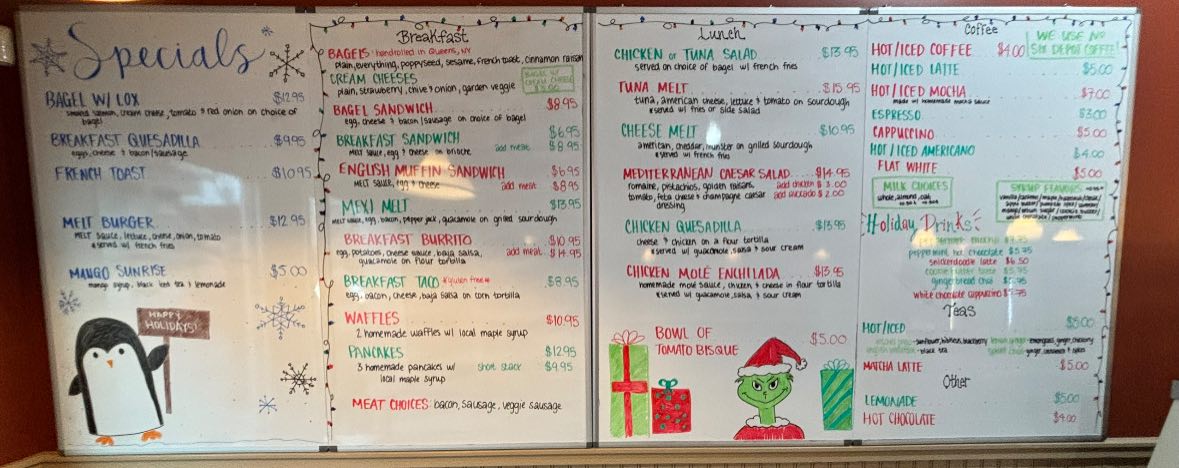 Specials
BAGEL W/ LOX $12.95
smoked salmon, cream cheese, tomato & red onion on choice of
bagel
BREAKFAST QUESADILLA $9.95
eggs, cheese & bacon/sausage
FRENCH TOAST $10.95
MELT BURGER $12.95
MELT sauce, lettuce, cheese, onion, tomato
*served w/ french fries
MANGO SUNRISE $5.00
mango syrup, black iced tea & lemonade
HAPPY
HOLIDAYS!
Breakfast
BAGELS: handrolled in Queens, NY
plain, everything, poppyseed, sesame, french toast, cinnamon raisin
CREAM CHEESES
plain, strawberry, chive & onion, garden veggie
BAGEL W/
CREAM CHEESE
BAGEL SANDWICH $8.95
egg, cheese & bacon/sausage on choice of bagel
BREAKFAST SANDWICH $6.95
MELT sauce, egg & cheese on brioche add meat $8.95
ENGLISH MUFFIN SANDWICH $6.95
MELT sauce, egg & cheese add meat $8.95
MEXI MELT $13.95
MELT sauce, egg, bacon, pepper jack, guacamole on grilled sourdough
BREAKFAST BURRITO $10.95
egg, potatoes, cheese sauce, baja salsa, add meat $14.95
guacamole on flour tortilla
BREAKFAST TACO *gluten free* $8.95
egg, bacon, cheese, baja salsa on corn tortilla
WAFFLES $10.95
2 homemade waffles w/ local maple syrup
PANCAKES $12.95
3 homemade pancakes w/ short stack $9.95
local maple syrup
MEAT CHOICES: bacon, sausage, veggie sausage
Lunch
CHICKEN or TUNA SALAD $13.95
served on choice of bagel w/ french fries
TUNA MELT $15.95
tuna, american cheese, lettuce & tomato on sourdough
*served w/ fries or side salad
CHEESE MELT $10.95
american, cheddar, munster on grilled sourdough
*served w/ french fries
MEDITERRANEAN CAESAR SALAD $14.95
romaine, pistachios, golden raisins, add chicken $3.00
tomato, feta cheese & champagne caesar add avocado $2.00
dressing
CHICKEN QUESADILLA $13.95
cheese & chicken on a flour tortilla
*served w/ guacamole, salsa & sour cream
CHICKEN MOLÉ ENCHILADA $13.95
homemade molé sauce, chicken & cheese in flour tortilla
*served w/ guacamole, salsa & sour cream
BOWL OF $5.00
TOMATO BISQUE
Coffee
WE USE NO
SIX DEPOT COFFEE!
HOT/ICED COFFEE $4.00
HOT/ICED LATTE $5.00
HOT/ICED MOCHA $7.00
made w/ homemade mocha sauce
ESPRESSO $3.00
CAPPUCCINO $5.00
HOT/ICED AMERICANO $4.00
FLAT WHITE $5.00
MILK CHOICES
whole, almond, oat
SYRUP FLAVORS
Holiday Drinks
peppermint mocha
peppermint hot chocolate $5.75
snickerdoodle latte $6.50
cookie butter latte $5.75
gingerbread chai
white chocolate cappuccino $5.75
Teas
HOT/ICED $5.00
MATCHA LATTE $5.00
Other
LEMONADE $5.00
HOT CHOCOLATE $4.00